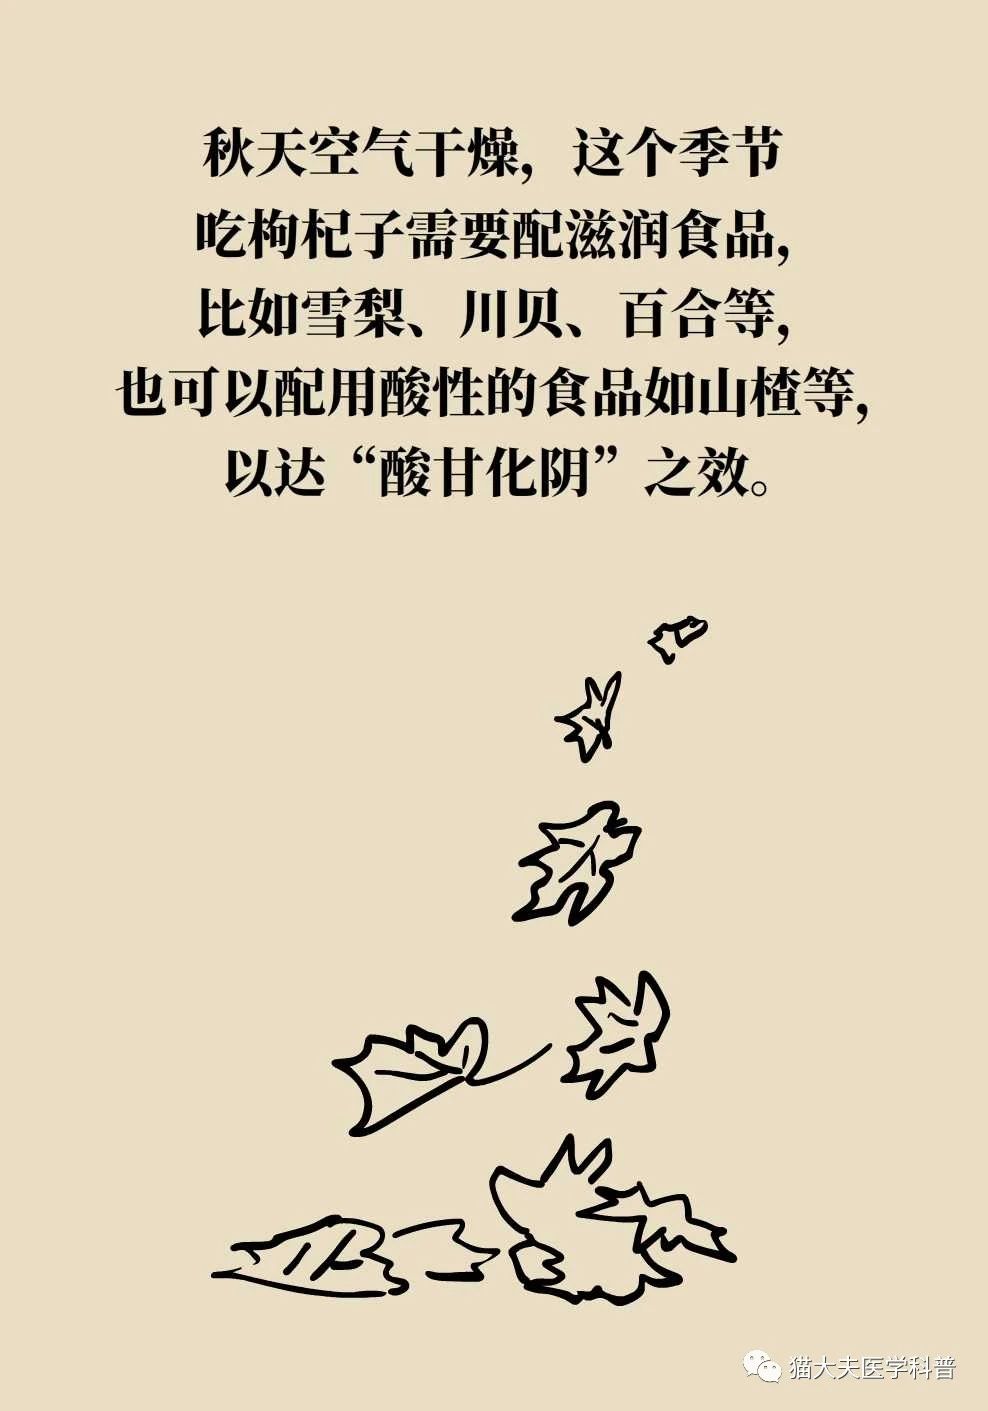 秋天空气干燥，这个季节
吃枸杞子需要配滋润食品，
比如雪梨、川贝、百合等，
也可以配用酸性的食品如山楂等，
以达“酸甘化阴”之效。
猫大夫医学科普